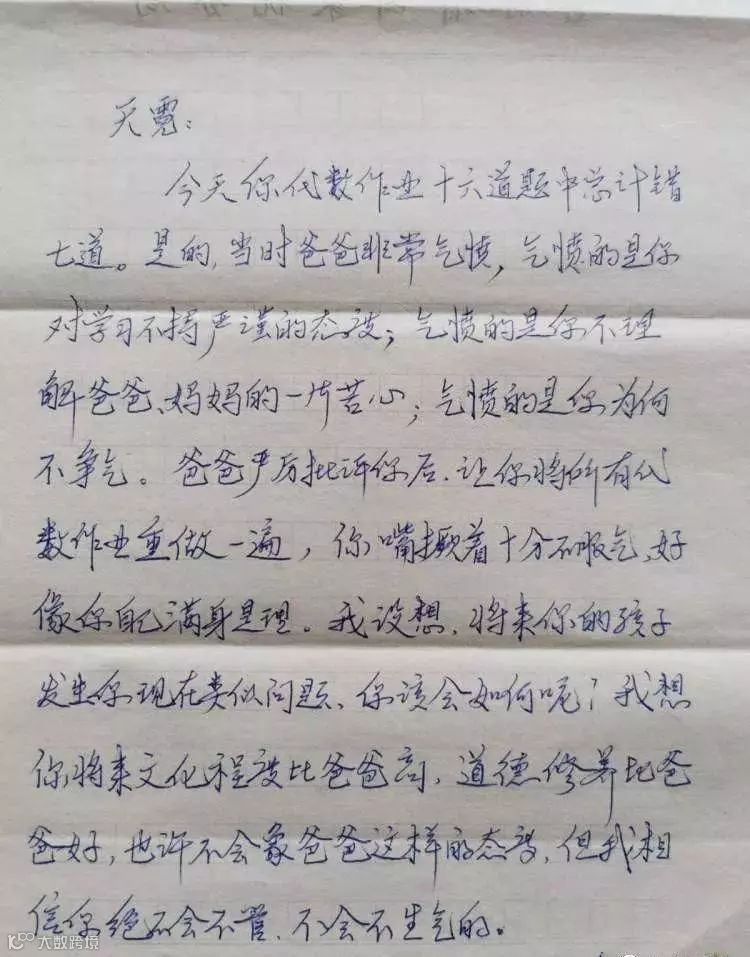 天霓：
今天你代数作业十六道题中总计错
七道。是的，当时爸爸非常气愤，气愤的是你
对学习不持严谨的态度；气愤的是你不理
解爸爸、妈妈的一片苦心；气愤的是你为何
不争气。爸爸严厉批评你后，让你将所有代
数作业重做一遍，你嘴撅着十分不服气，好
像你自己满身是理。我设想，将来你的孩子
发生你现在类似问题、你该会如何呢？我想
你将来文化程度比爸爸高，道德修养比爸
爸好，也许不会象爸爸这样的态度，但我相
信你绝不会不管、不会不生气的。
大数跨境